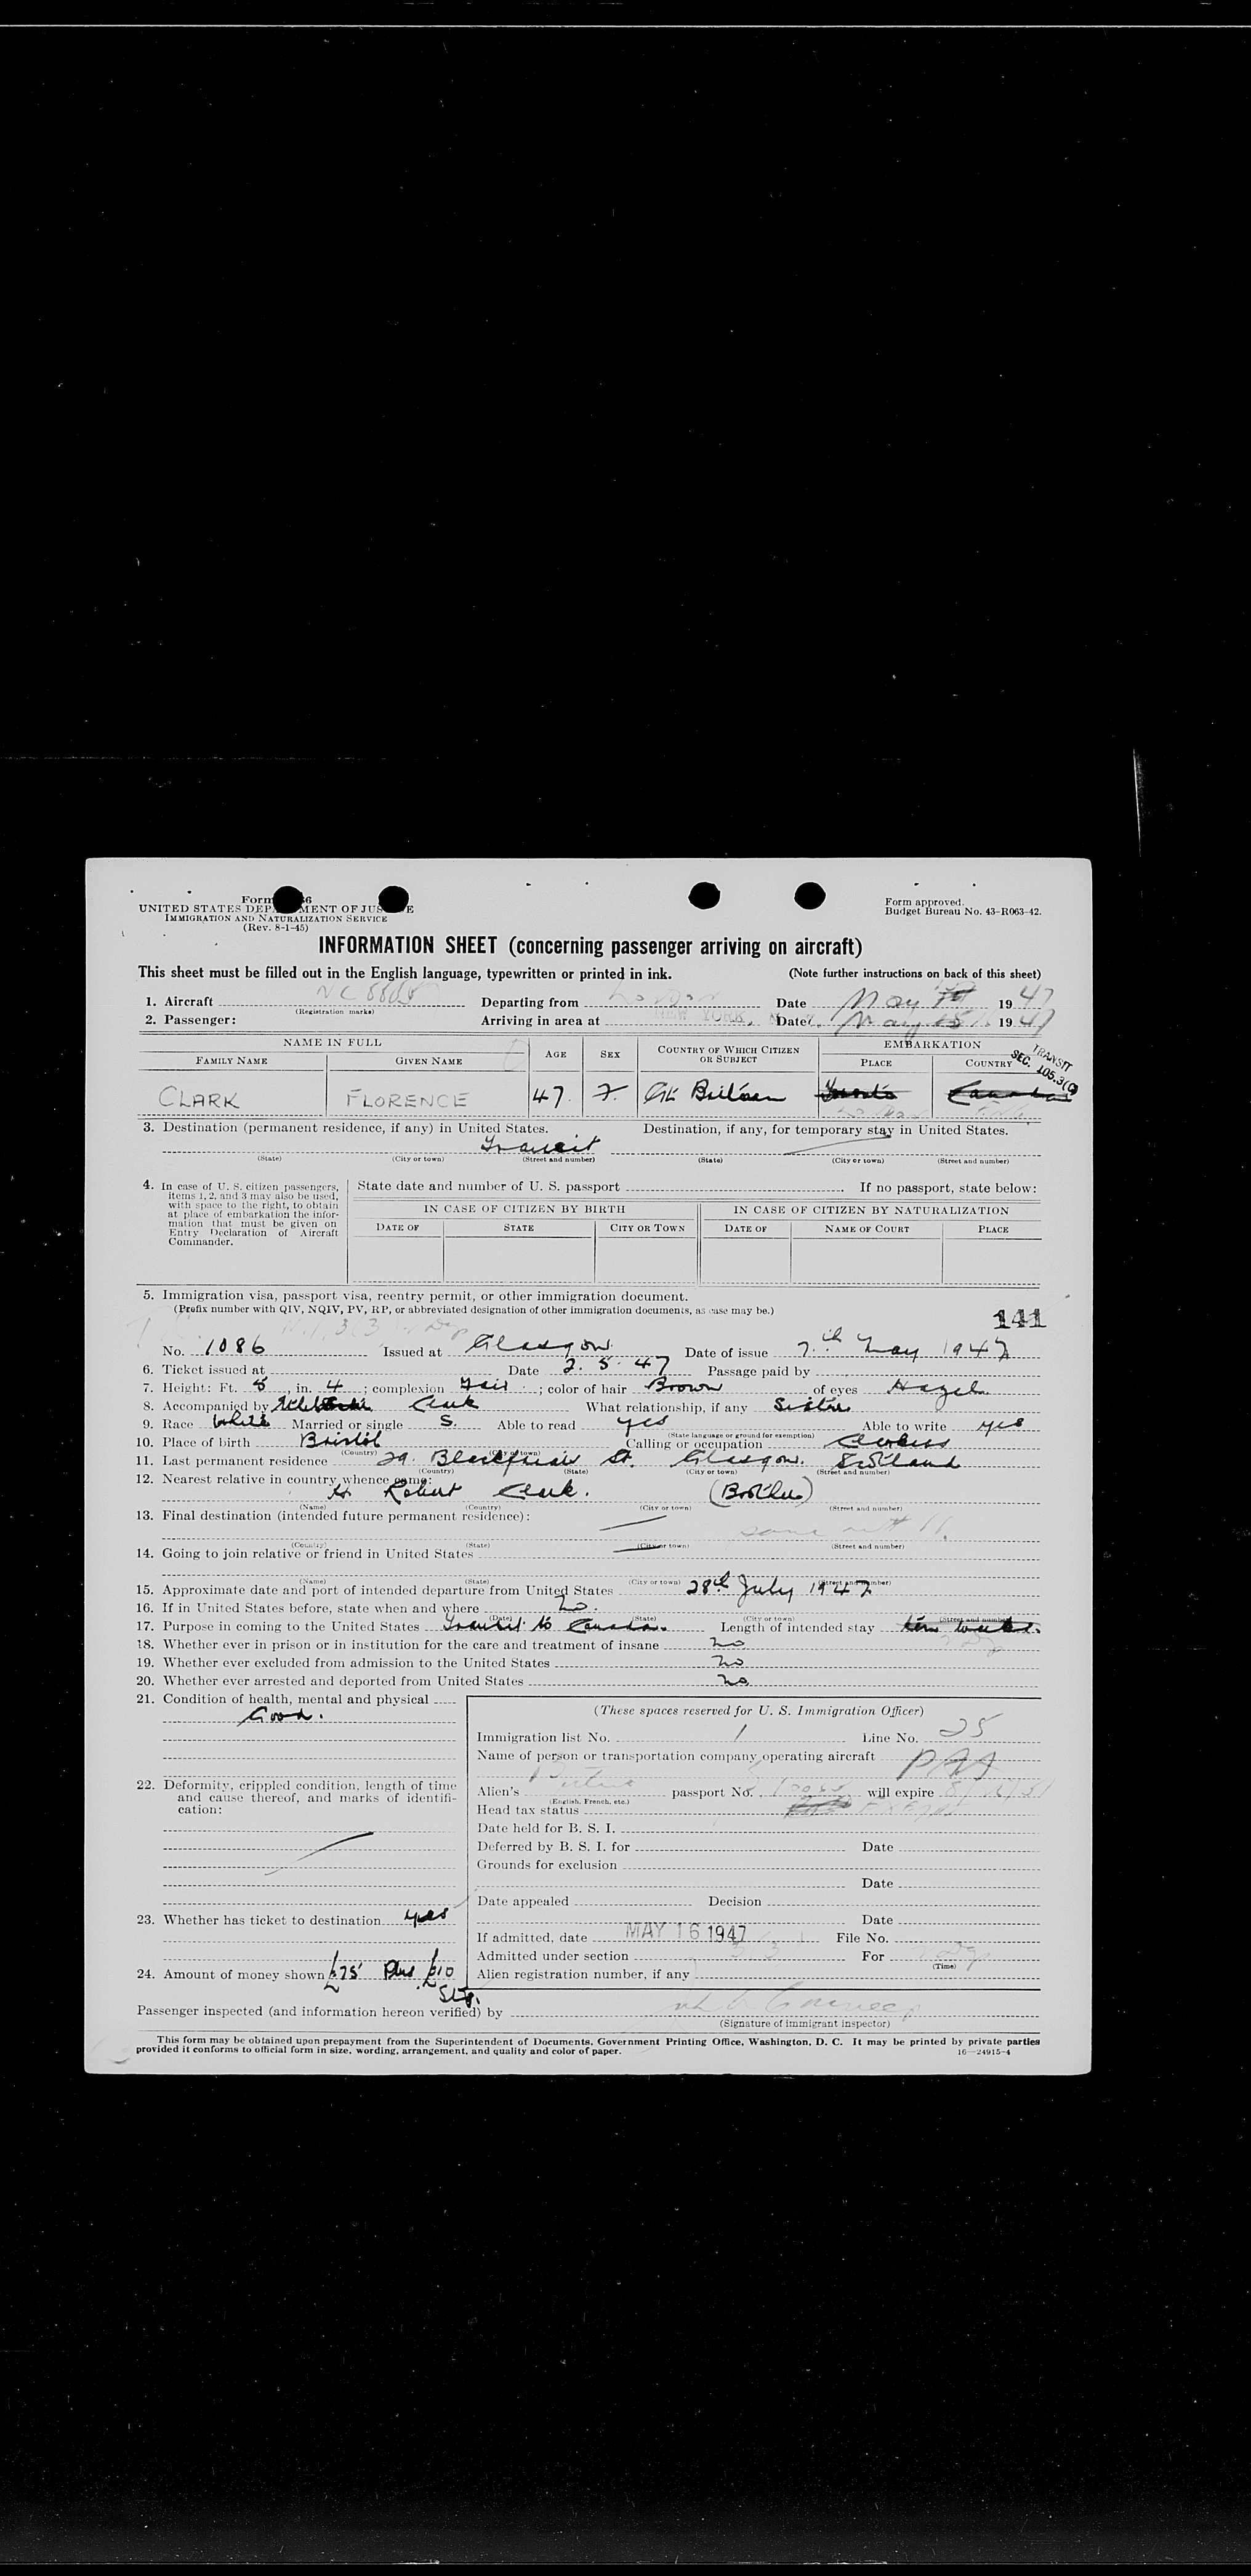 Form
UNITED STATES DEPARTMENT OF JUSTICE
IMMIGRATION AND NATURALIZATION SERVICE
(Rev. 8-1-45)
Form approved.
Budget Bureau No. 43-R063-42.
INFORMATION SHEET (concerning passenger arriving on aircraft)
This sheet must be filled out in the English language, typewritten or printed in ink. (Note further instructions on back of this sheet)
1. Aircraft Departing from London Date May 1947
(Registration marks)
2. Passenger: Arriving in area at NEW YORK, Date May 15 1947
NAME IN FULL
FAMILY NAME GIVEN NAME AGE SEX COUNTRY OF WHICH CITIZEN OR SUBJECT EMBARKATION
PLACE COUNTRY
TRANSIT
SEC. 105.3(C)
CLARK FLORENCE 47. F. Gt. Britain Toronto Canada
3. Destination (permanent residence, if any) in United States. Destination, if any, for temporary stay in United States.
Transit
(State) (City or town) (Street and number) (State) (City or town) (Street and number)
4. In case of U. S. citizen passengers, items 1, 2, and 3 may also be used, with space to the right, to obtain at place of embarkation the information that must be given on Entry Declaration of Aircraft Commander.
State date and number of U. S. passport If no passport, state below:
IN CASE OF CITIZEN BY BIRTH IN CASE OF CITIZEN BY NATURALIZATION
DATE OF STATE CITY OR TOWN DATE OF NAME OF COURT PLACE
5. Immigration visa, passport visa, reentry permit, or other immigration document.
(Prefix number with QIV, NQIV, PV, RP, or abbreviated designation of other immigration documents, as case may be.)
141
No. 1086 Issued at Glasgow Date of issue 7th May 1947
6. Ticket issued at Date 2.5.47 Passage paid by
7. Height: Ft. 5 in. 4 ; complexion Fair ; color of hair Brown of eyes Hazel
8. Accompanied by Clark What relationship, if any Sister
9. Race White Married or single S. Able to read yes Able to write yes
(State language or ground for exemption)
10. Place of birth Bristol Calling or occupation
(Country) (City or town)
11. Last permanent residence 29. Blackfriars St. Glasgow. Scotland
(Country) (State) (City or town) (Street and number)
12. Nearest relative in country whence came:
Robert Clark. (Brother)
(Name) (Country) (City or town) (Street and number)
13. Final destination (intended future permanent residence):
same as # 11.
(Country) (State) (City or town) (Street and number)
14. Going to join relative or friend in United States
(Name) (State) (City or town) (Street and number)
15. Approximate date and port of intended departure from United States 28th July 1947
16. If in United States before, state when and where No.
(Date) (State) (City or town) (Street and number)
17. Purpose in coming to the United States Transit to Canada. Length of intended stay ten weeks.
18. Whether ever in prison or in institution for the care and treatment of insane no
19. Whether ever excluded from admission to the United States no
20. Whether ever arrested and deported from United States no
21. Condition of health, mental and physical
Good.
22. Deformity, crippled condition, length of time and cause thereof, and marks of identification:
23. Whether has ticket to destination yes
24. Amount of money shown £75 Plus £10
Stg.
(These spaces reserved for U. S. Immigration Officer)
Immigration list No. 1 Line No. 25
Name of person or transportation company operating aircraft PAA
Alien's passport No. will expire
(English, French, etc.)
Head tax status
Date held for B. S. I.
Deferred by B. S. I. for Date
Grounds for exclusion
Date
Date appealed Decision
Date
If admitted, date MAY 16 1947 File No.
Admitted under section For
(Time)
Alien registration number, if any
Passenger inspected (and information hereon verified) by
(Signature of immigrant inspector)
This form may be obtained upon prepayment from the Superintendent of Documents, Government Printing Office, Washington, D. C. It may be printed by private parties
provided it conforms to official form in size, wording, arrangement, and quality and color of paper. 16—24915-4